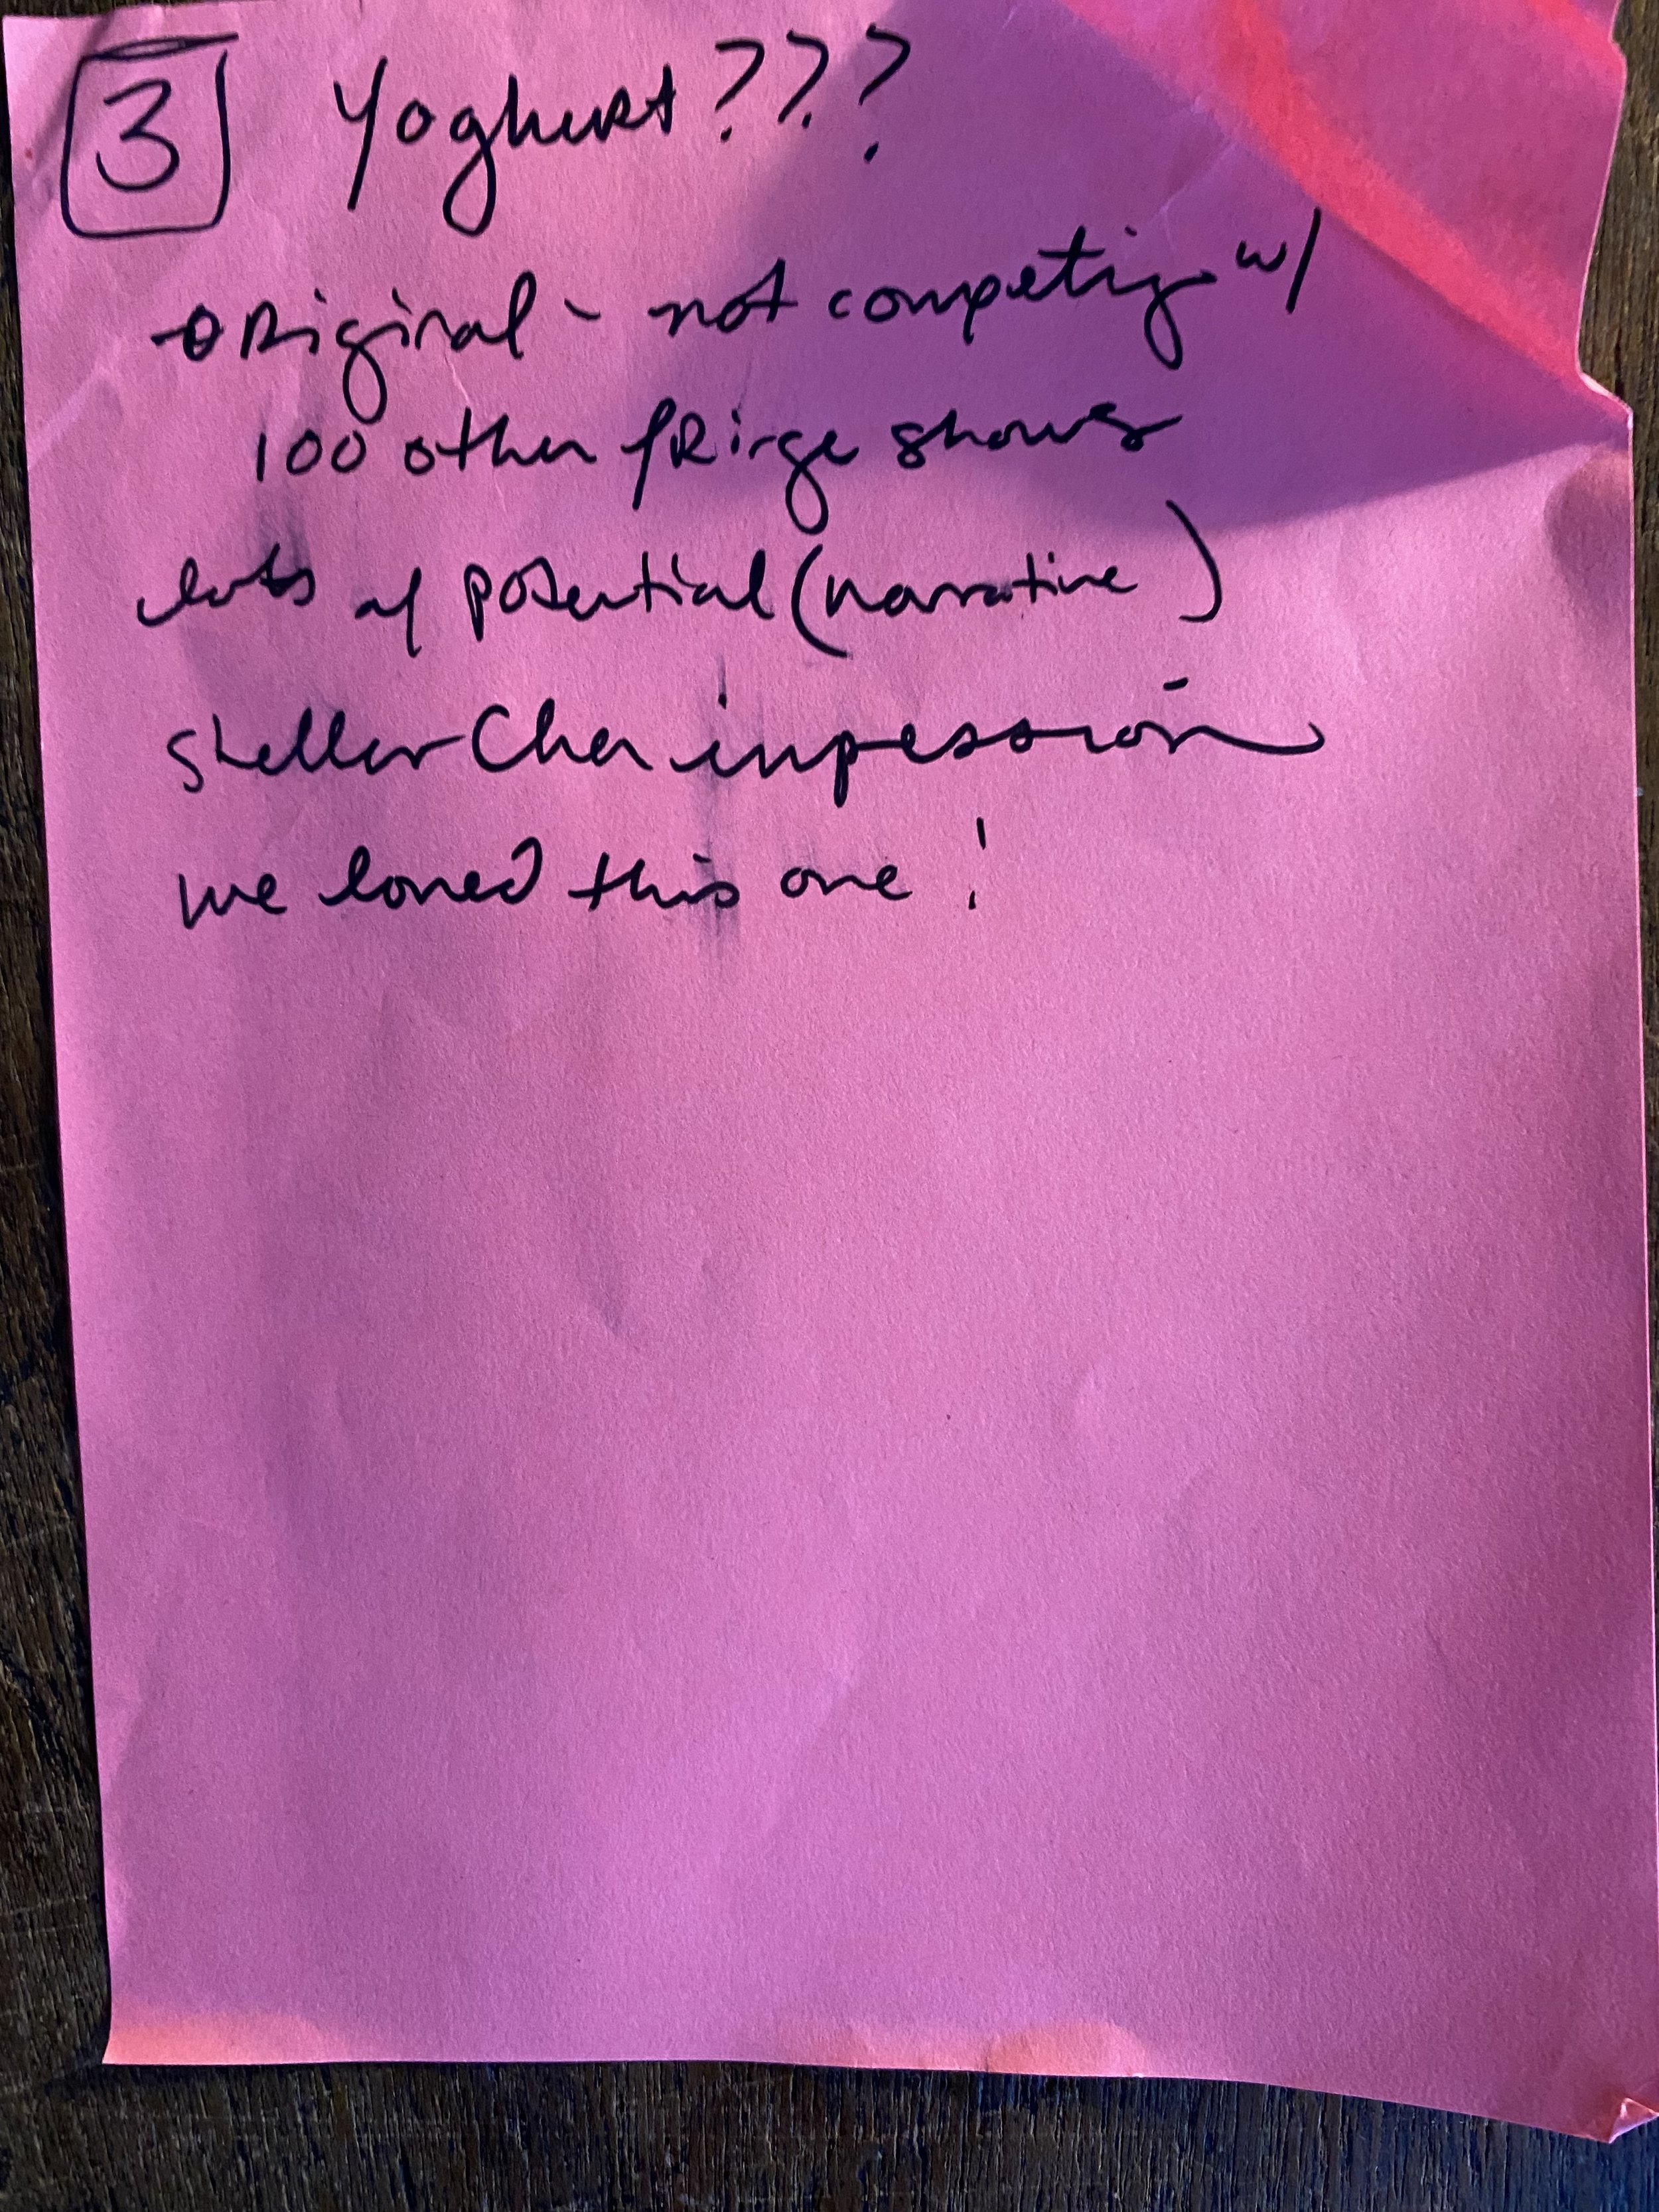 3 Yoghurt ???
original - not competing w/
100 other fringe shows
lots of potential (narrative)
stellar Cher impession
we loved this one!